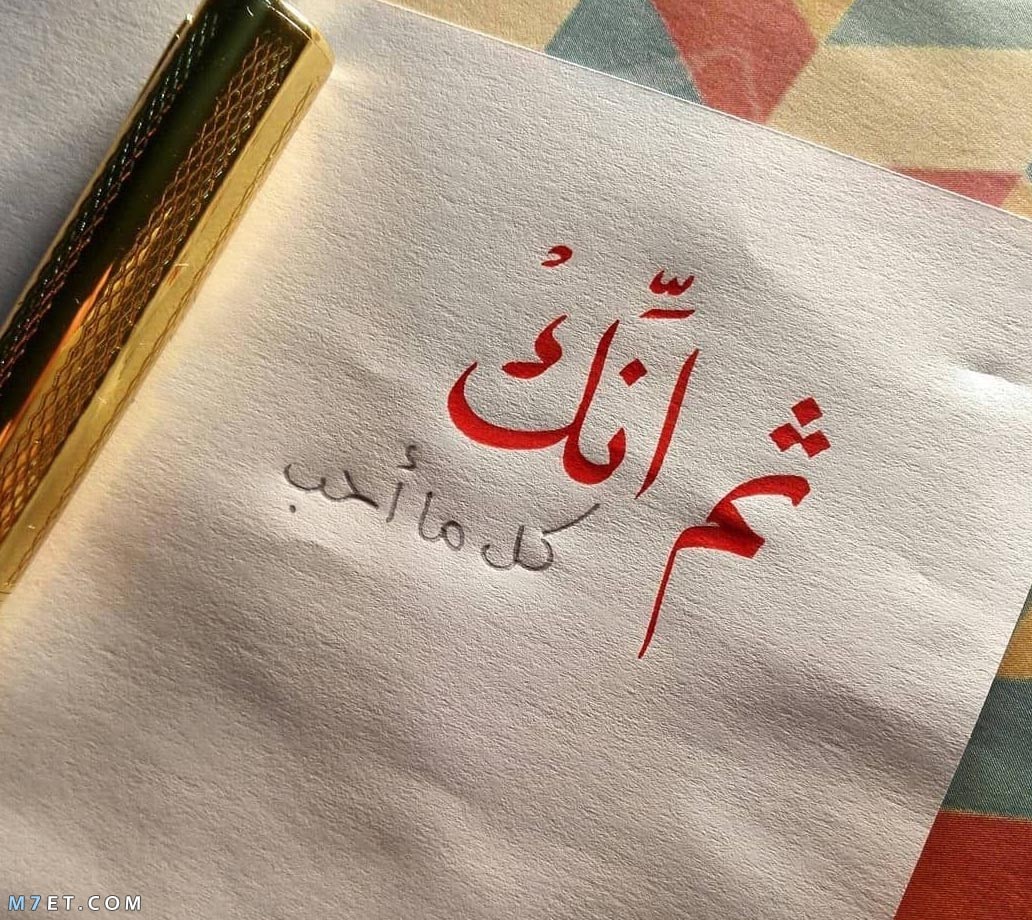 ثم انَّكْ
كل ما أحب
M7ET.COM